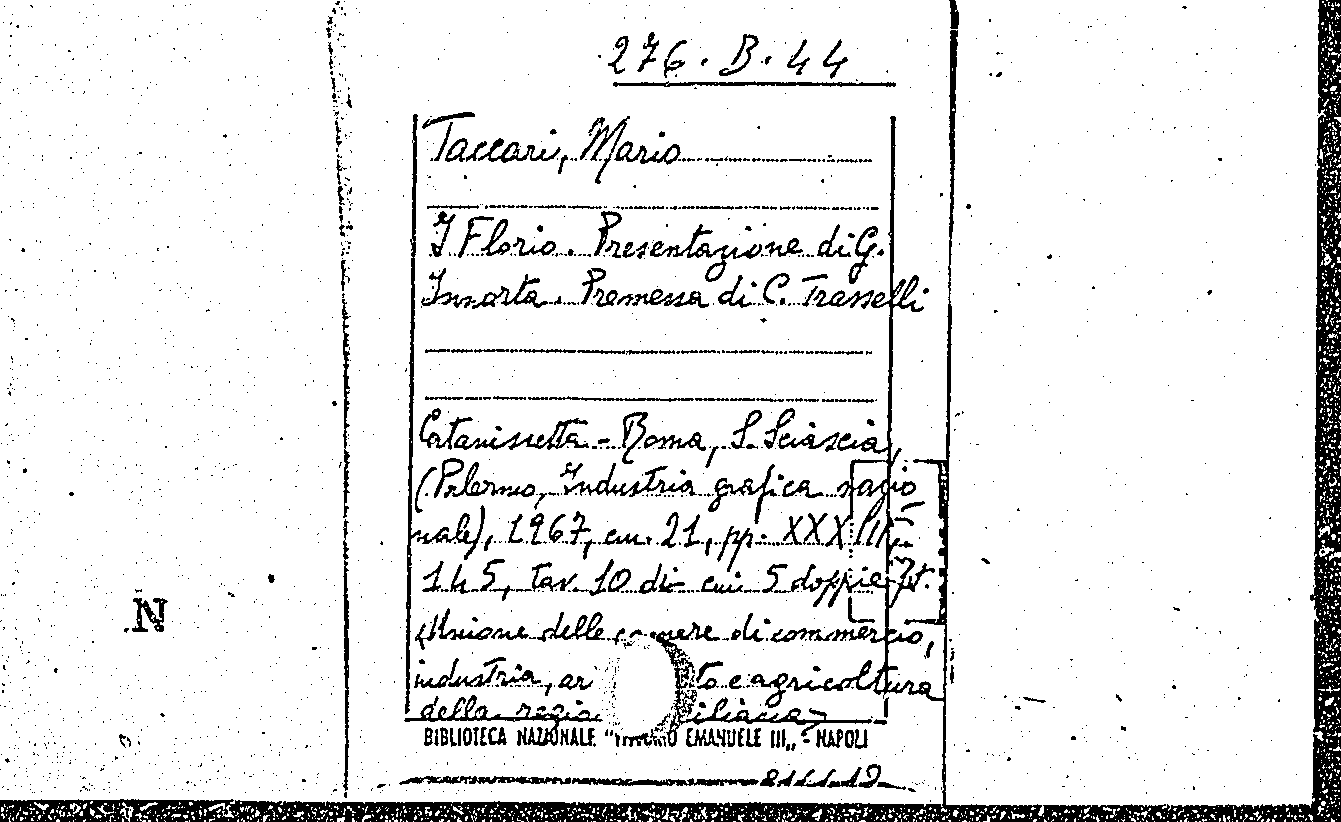 276.B.44
Taccari, Mario
I Florio. Presentazione di G.
Inzarta. Premessa di C. Trasselli
Caltanissetta - Roma, S. Sciascia,
(Palermo, Industria grafica nazio
nale), 1967, cm. 21, pp. XXXIII,
145, tav. 10 di cui 5 doppie
(Unione delle camere di commercio,
industria, ar to e agricoltura
della regio iliana)
BIBLIOTECA NAZIONALE "VITTORIO EMANUELE III„ - NAPOLI
N